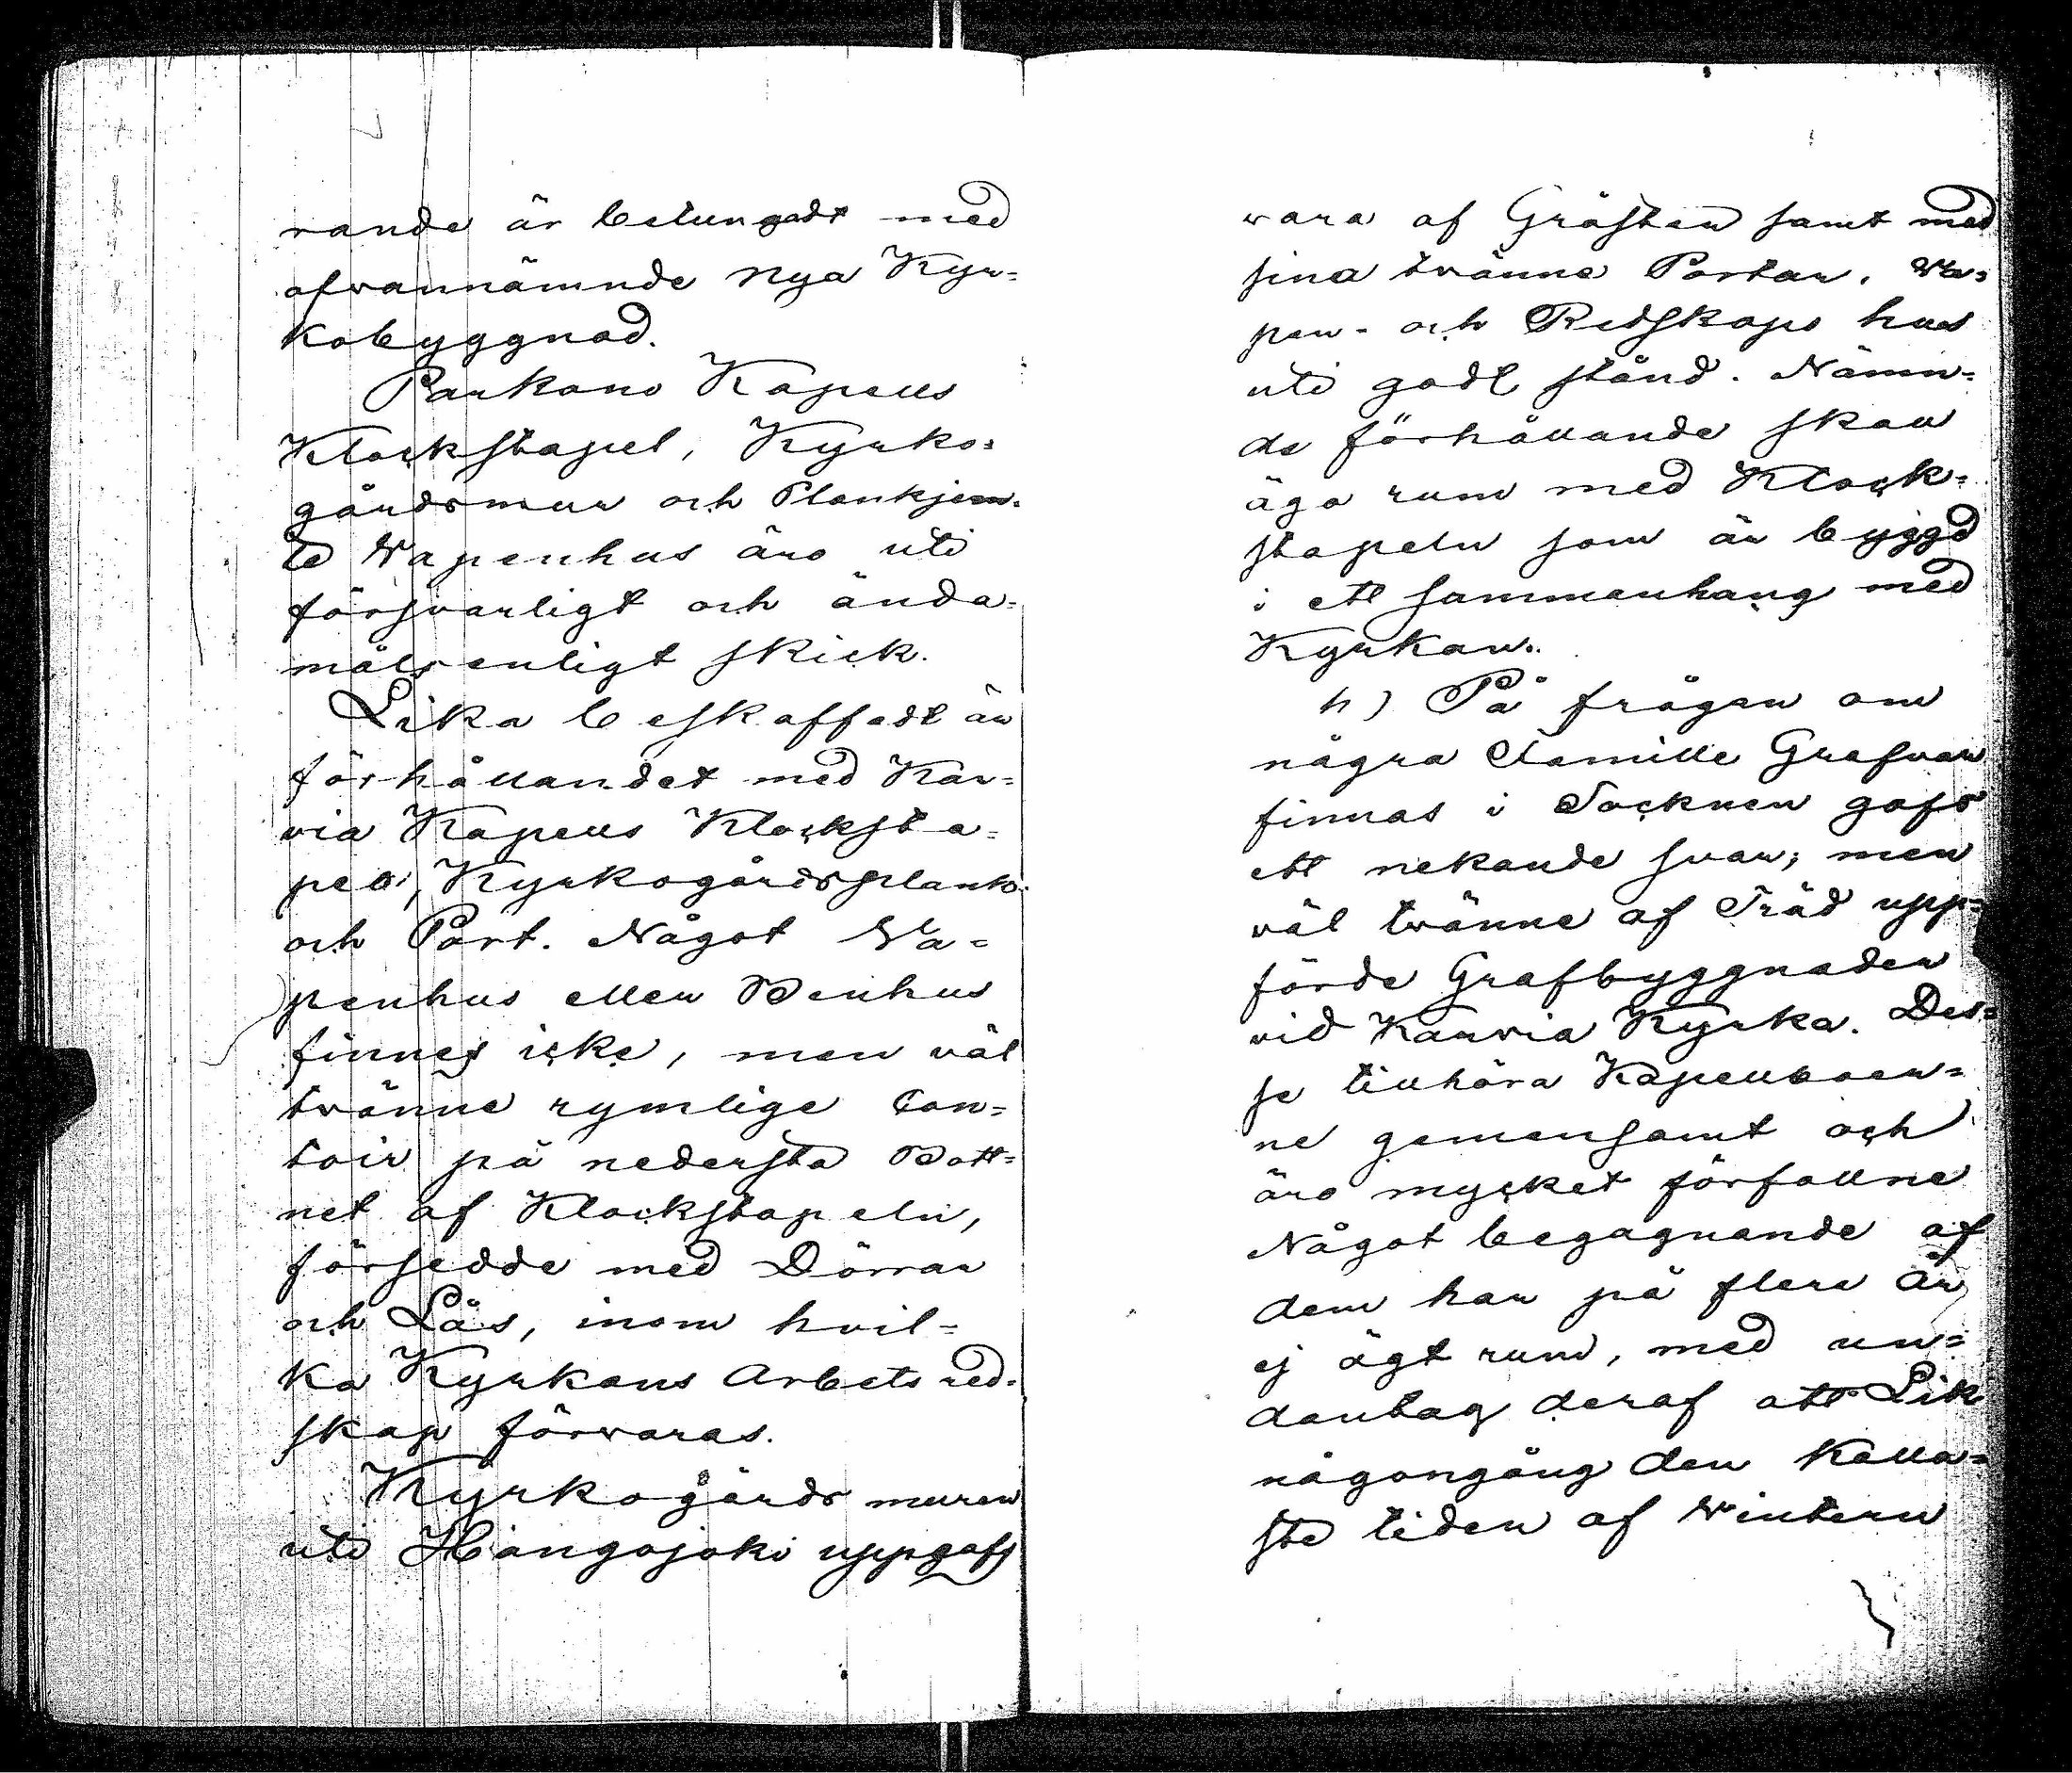 rande är betungadt med
ofvannämnde nya Kyr=
kobyggnad.
Parkano Kapells
Klockstapel, Kyrko=
gårdsmur och Plankjem=
te Wapenhus äro uti
försvarligt och ända=
målsenligt skick.
Lika beskaffadt är
förhållandet med Kar=
via Kapells Klocksta=
pel, Kyrkogårdsplank
och Port. Något Va=
penhus eller Benhus
finnes icke, men väl
tvänne rymlige Con=
toir på nedersta Bott=
net af Klockstapeln,
försedde med Dörrar
och Lås, inom hvil=
ka Kyrkans Arbetsred=
skap förvaras.
Kyrkogårds muren
uti Hongojoki uppgafs
vara af Gråsten samt med
sina tvänne Portar, Wa=
pen- och Redskaps hus
uti godt stånd. Nämn=
de förhållande skall
äga rum med Klock=
stapeln som är byggd
i ett sammenhang med
Kyrkan.
h) På frågan om
några Famille Grafvar
finnas i Socknen gafs
ett nekande svar; men
väl tvänne af Träd upp=
förde Grafbyggnader
vid Karvia Kyrka. Des=
se tillhöra Kapellboer=
ne gemensamt och
äro mycket förfallne
Något begagnande af
dem har på flere år
ej ägt rum, med un=
dantag deraf att Lik
någongång den kalla=
ste tiden af Wintern